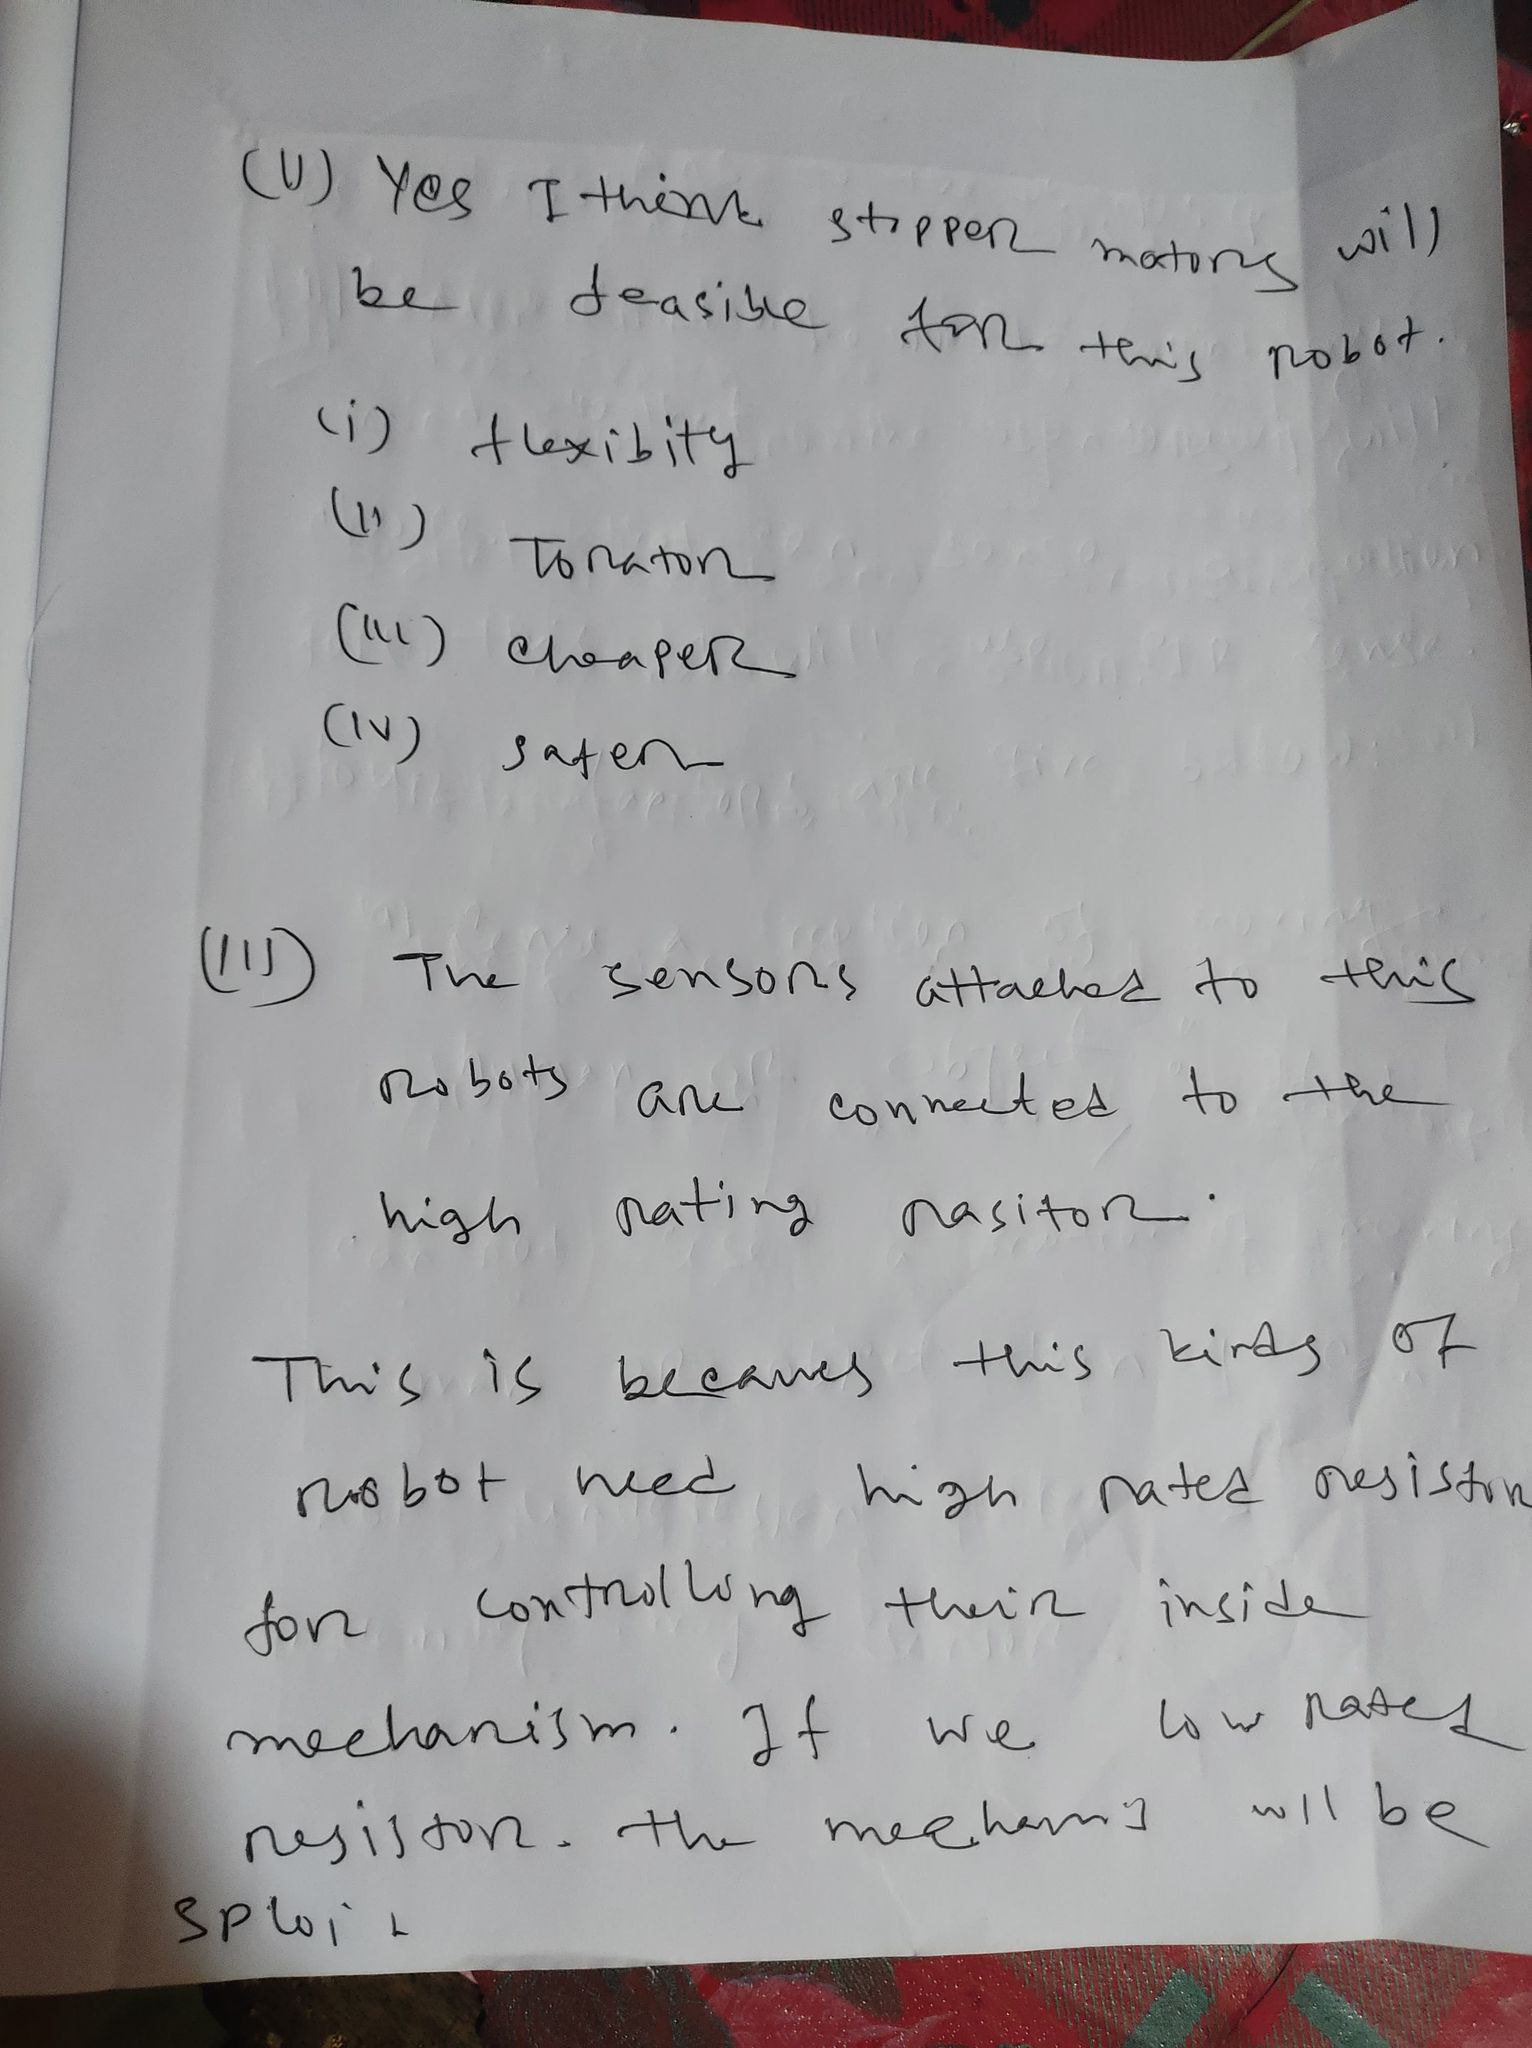 (II) Yes I think stepper motors will
be feasible for this robot.
(i) flexibity
(ii) Torator
(iii) cheaper
(iv) safer
(III) The sensors attached to this
robots are connected to the
high rating rasitor.
This is becaues this kinds of
robot need high rated resistor
for controlling their inside
mechanism. If we low rated
resistor. the mechanis will be
sploit